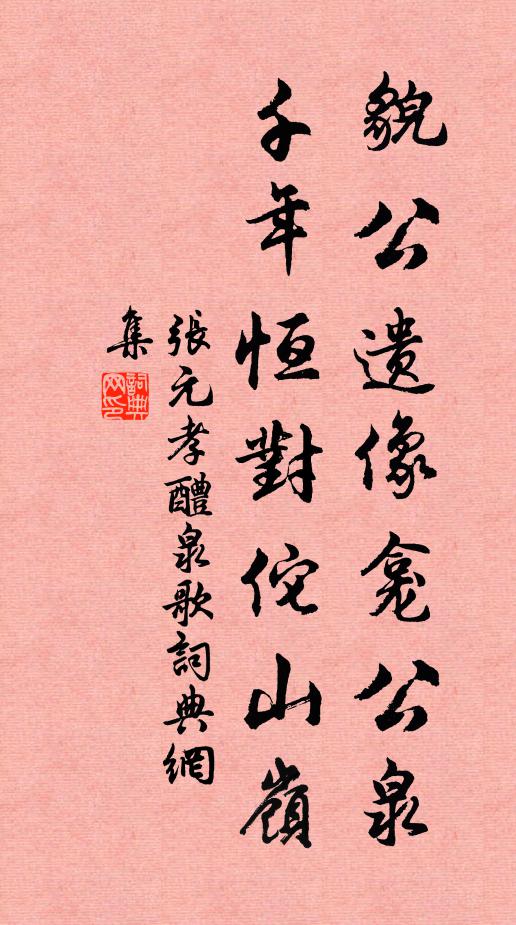 貌公遺像龕公泉
千年恒對佗山嶺
張元孝醴泉歌詞典網
集
詞典網印